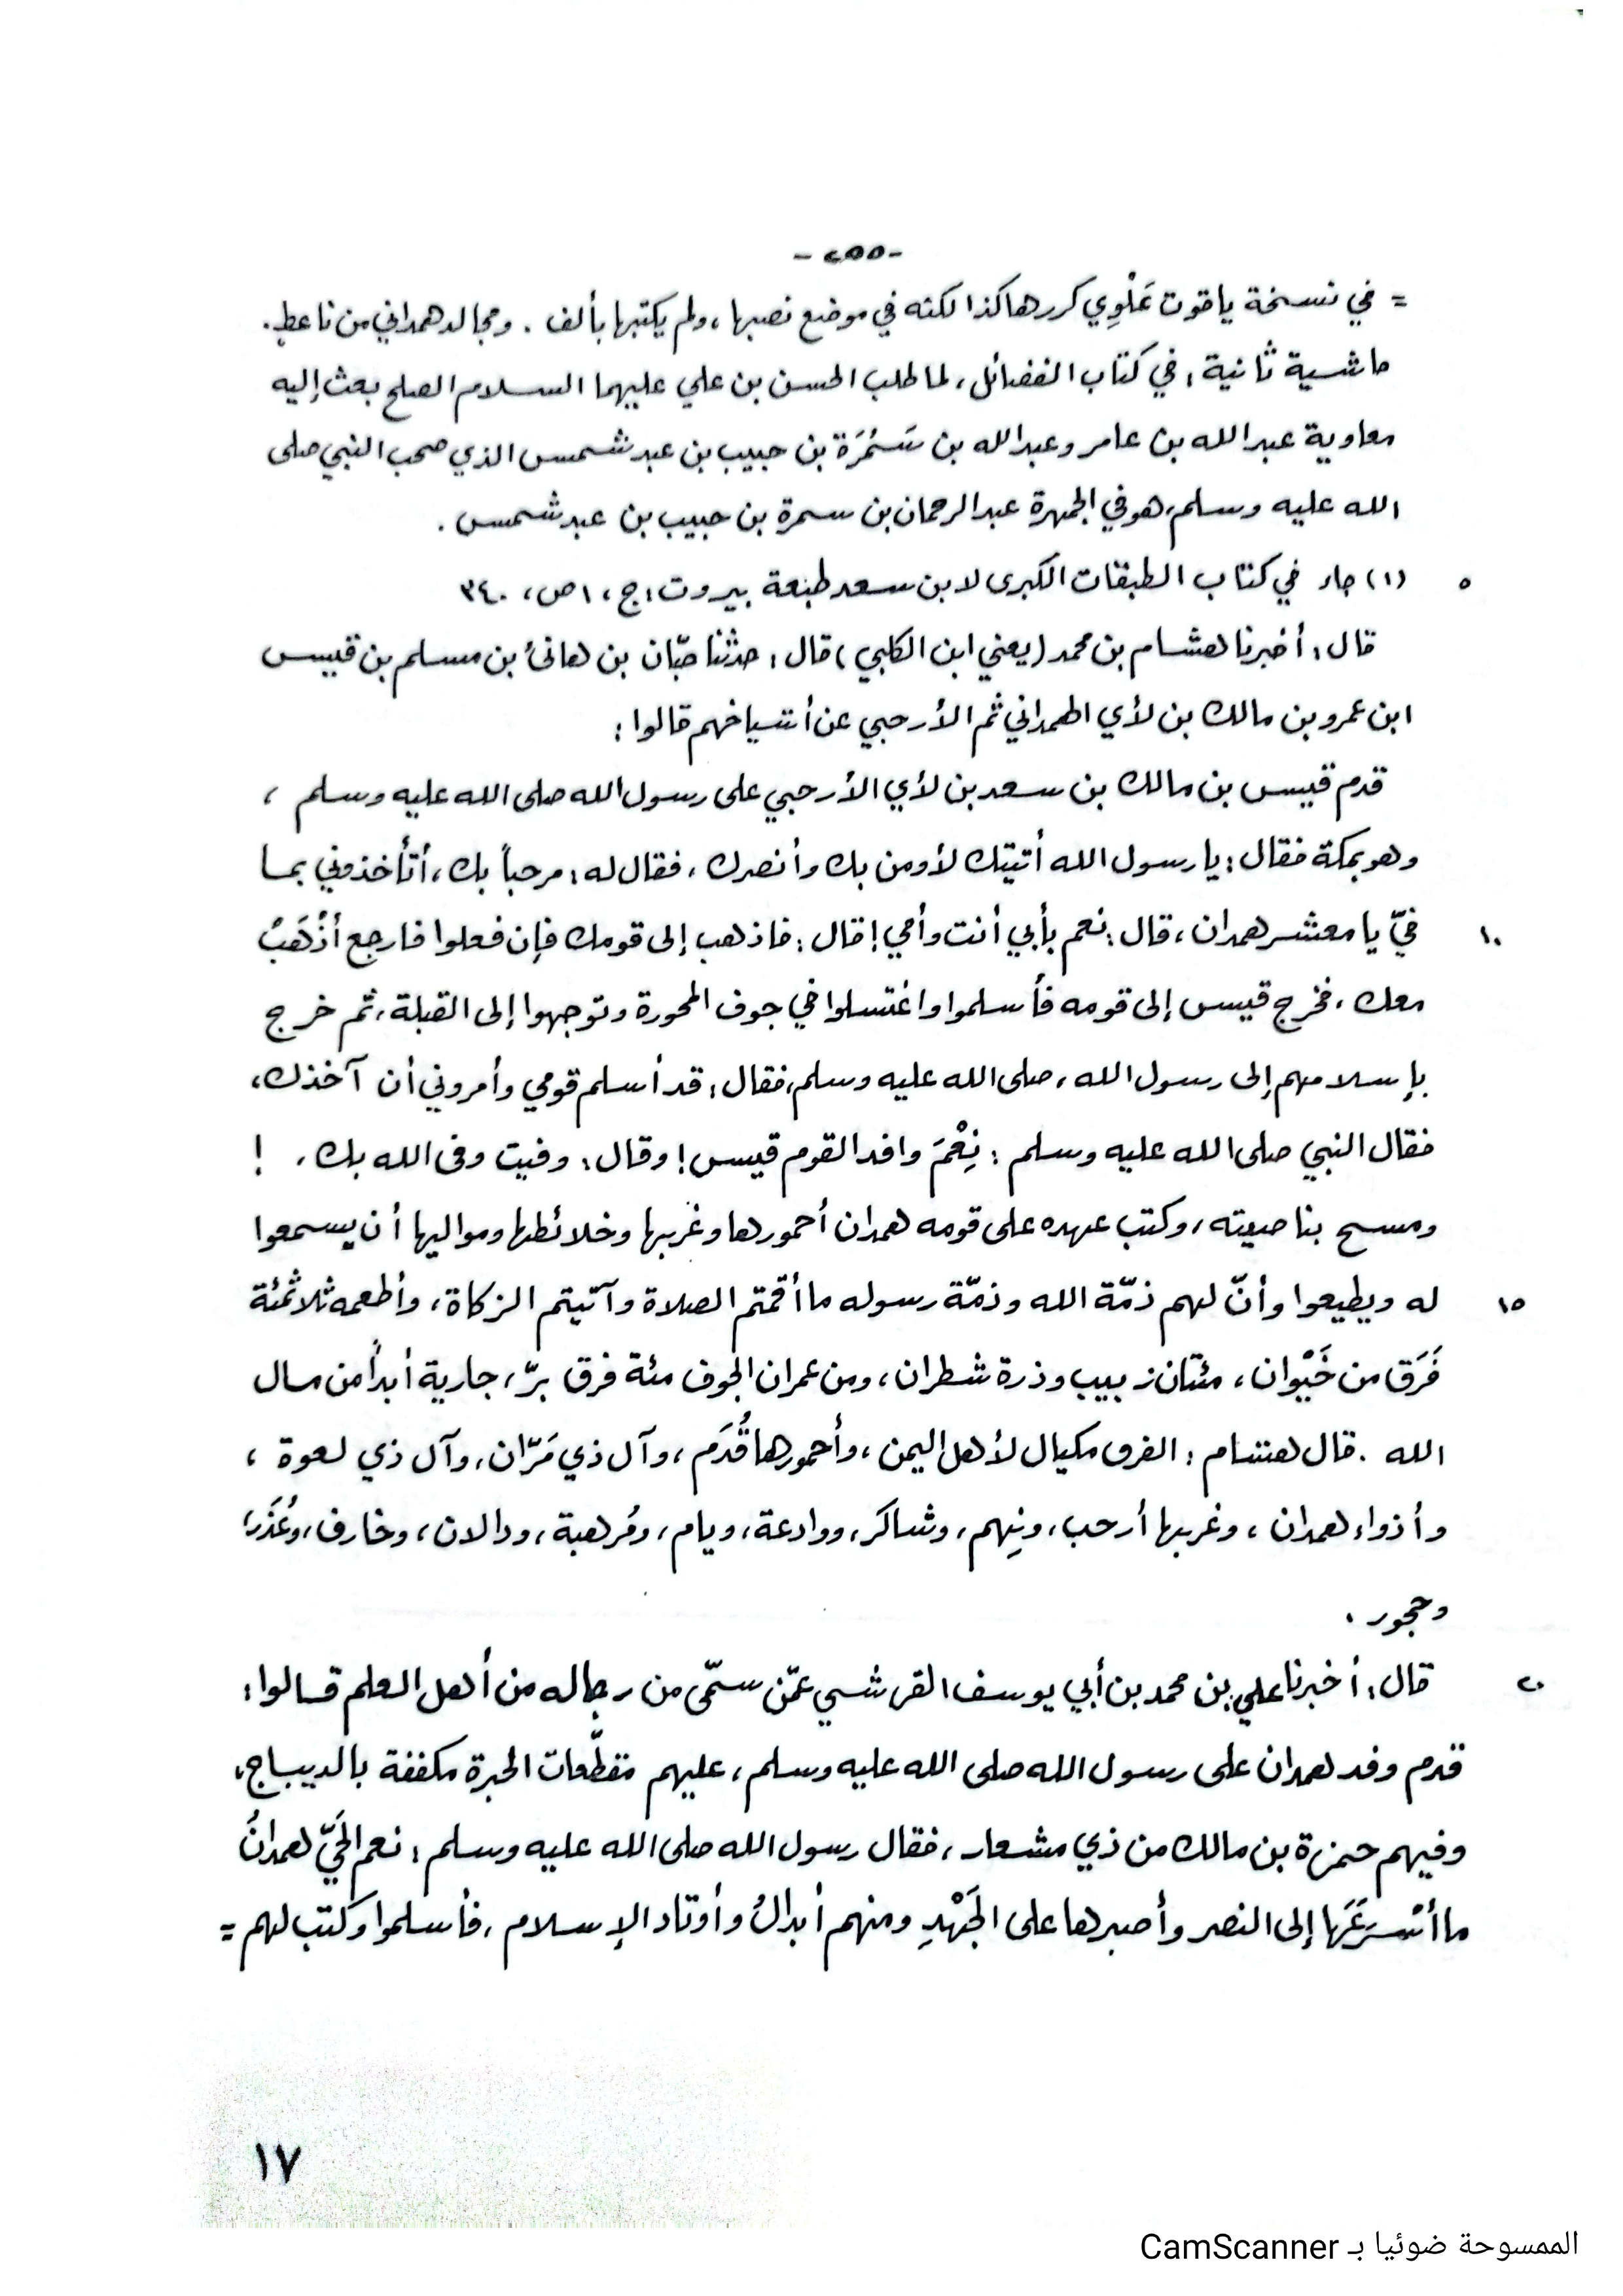 -٢٥٥-
= في نسخة ياقوت عَلْوِي كررها كذا لكنه في موضع نصبها، ولم يكتبها بألف . ومجالد همداني من ناعط.
حاشية ثانية: في كتاب الفضائل، لما طلب الحسن بن علي عليهما السلام الصلح بعث إليه
معاوية عبد الله بن عامر وعبد الله بن سَمُرَة بن حبيب بن عبد شمس الذي صحب النبي صلى
الله عليه وسلم، هو في الجمهرة عبد الرحمان بن سمرة بن حبيب بن عبد شمس .
٥ (١) جاء في كتاب الطبقات الكبرى لابن سعد طبعة بيروت: ج، ١ ص، ٣٤٠
قال: أخبرنا هشام بن محمد (يعني ابن الكلبي) قال: حدثنا حبّان بن هانئ بن مسلم بن قيس
ابن عمرو بن مالك بن لأي الهمداني ثم الأرحبي عن أشياخهم قالوا:
قدم قيس بن مالك بن سعد بن لأي الأرحبي على رسول الله صلى الله عليه وسلم ،
وهو بمكة فقال: يا رسول الله أتيتك لأومن بك وأنصرك، فقال له: مرحباً بك، أتأخذوني بما
١٠ فيّ يا معشر همدان، قال: نعم بأبي أنت وأمي! قال: فاذهب إلى قومك فإن فعلوا فارجع أذْهَبْ
معك، فخرج قيس إلى قومه فأسلموا واغتسلوا في جوف المحورة وتوجهوا إلى القبلة، ثم خرج
بإسلامهم إلى رسول الله، صلى الله عليه وسلم، فقال: قد أسلم قومي وأمروني أن آخذك،
فقال النبي صلى الله عليه وسلم : نِعْمَ وافد القوم قيس! وقال: وفيت وفى الله بك، !
ومسح بناصيته، وكتب عهده على قومه همدان أحمورها وغربها وخلائطها ومواليها أن يسمعوا
١٥ له ويطيعوا وأنّ لهم ذمّة الله وذمّة رسوله ما أقمتم الصلاة وآتيتم الزكاة، وأطعمه ثلاثمئة
فَرَق من خَيْوان، مئتان زبيب وذرة شطران، ومن عمران الجوف مئة فرق برّ، جارية أبداً من مال
الله . قال هشام : الفرق مكيال لأهل اليمن، وأحمورها قُدَم، وآل ذي مَرّان، وآل ذي لعوة ،
وأذواء همدان ، وغربها أرحب، ونِهم، وشاكر، ووادعة، ويام، ومُرهبة، ودالان، وخارف، وعُذَر،
وحجور .
٢٠ قال: أخبرنا علي بن محمد بن أبي يوسف القرشي عمّن سمّى من رجاله من أهل العلم قالوا:
قدم وفد همدان على رسول الله صلى الله عليه وسلم، عليهم مقطّعات الحبرة مكففة بالديباج،
وفيهم حمزة بن مالك من ذي مشعار، فقال رسول الله صلى الله عليه وسلم : نعم الحَيّ همدانُ
ما أسْرَعَهَا إلى النصر وأصبرها على الجَهْدِ ومنهم أبدالُ وأوتاد الإسلام، فأسلموا وكتب لهم =
١٧
الممسوحة ضوئيا بـ CamScanner